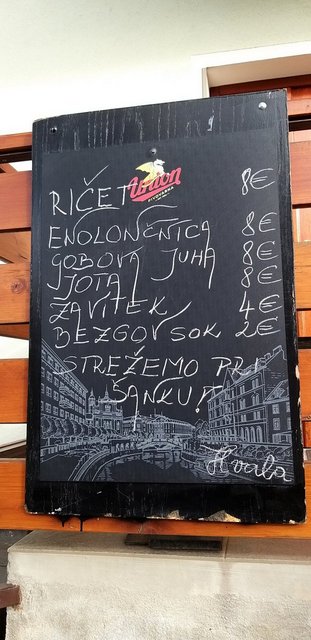 Union
PIVOVARNA
RIČET 8€
ENOLONČNICA 8€
GOBOVA JUHA 8€
JOTA 8€
ZAVITEK 4€
BEZGOV SOK 2€
STREŽEMO PRI
ŠANKU!
Hvala